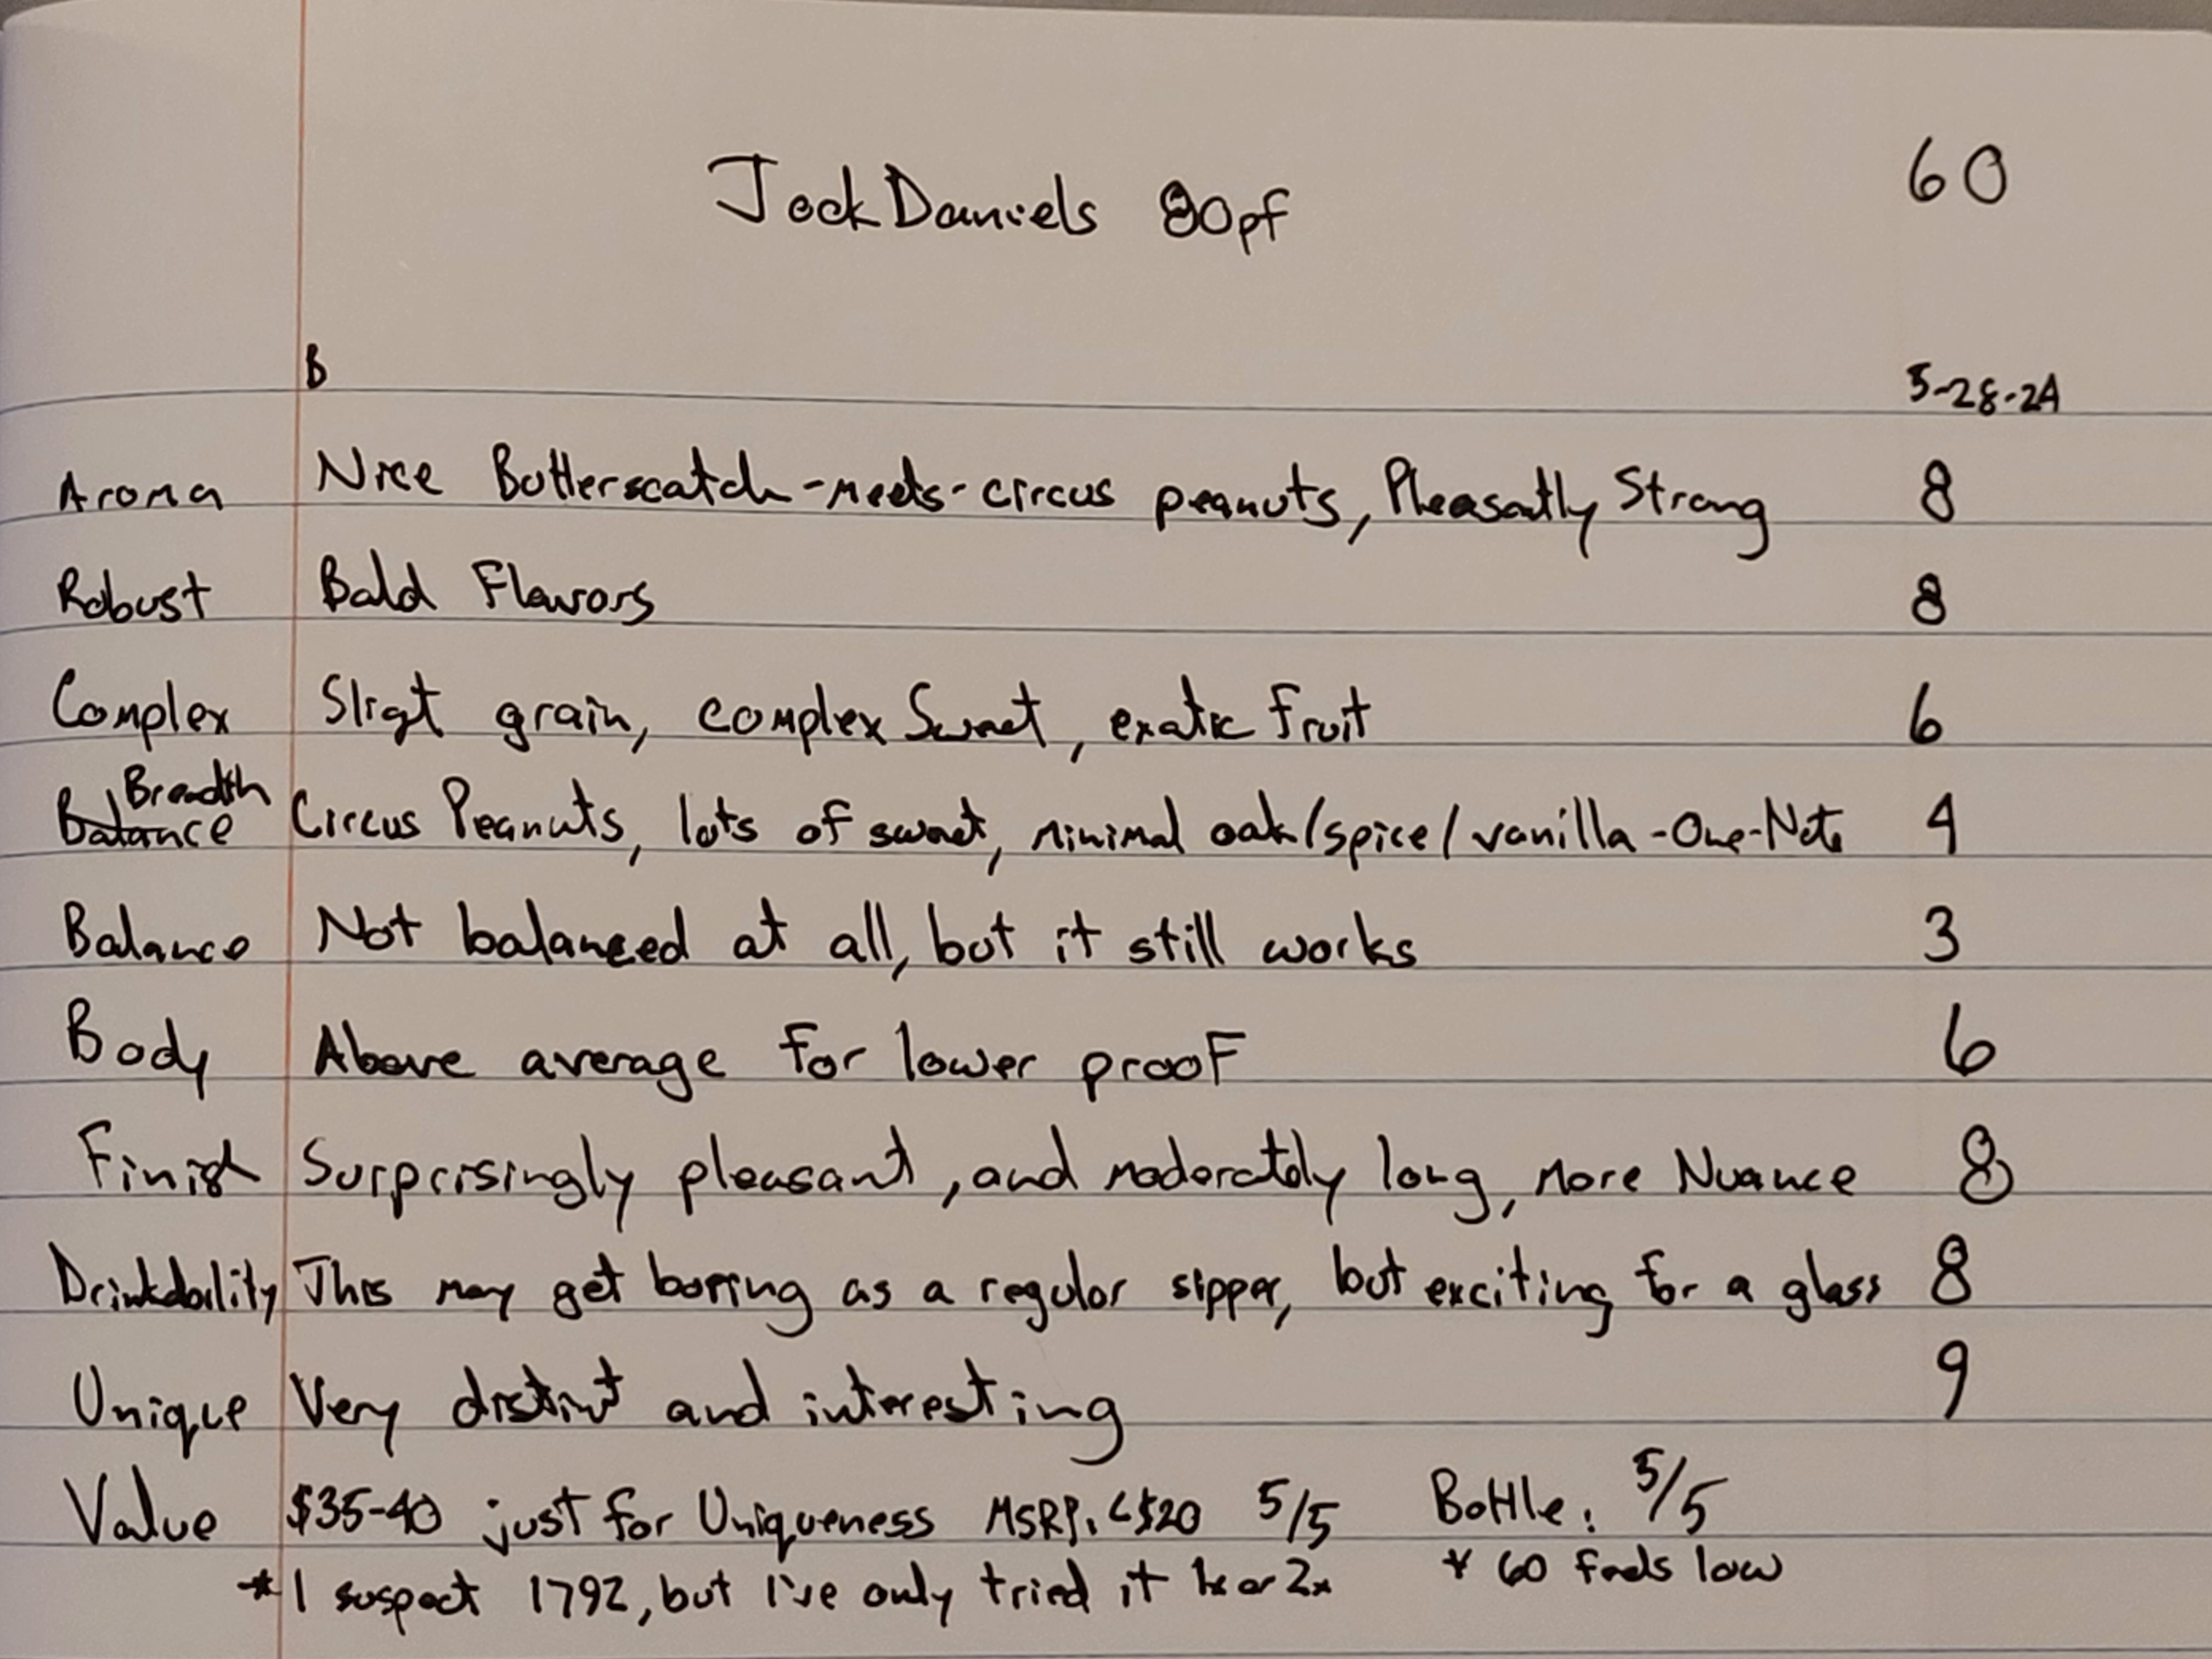 60
Jack Daniels 80pf
B 5-28-24
Aroma Nice Butterscotch-meets-circus peanuts, Pleasatly Strong 8
Robust Bold Flavors 8
Complex Sligt grain, complex Sweet, exotic fruit 6
Breadth
Balance Circus Peanuts, lots of sweet, minimal oak/spice/vanilla-One-Note 4
Balance Not balanced at all, but it still works 3
Body Above average for lower proof 6
Finish Surprisingly pleasant, and moderately long, more Nuance 8
Drinkability This may get boring as a regular sipper, but exciting for a glass 8
Unique Very distint and interesting 9
Value $35-40 just for Uniqueness MSRP: <$20 5/5 Bottle: 5/5
*I suspect 1792, but I've only tried it 1x or 2x * 60 feels low